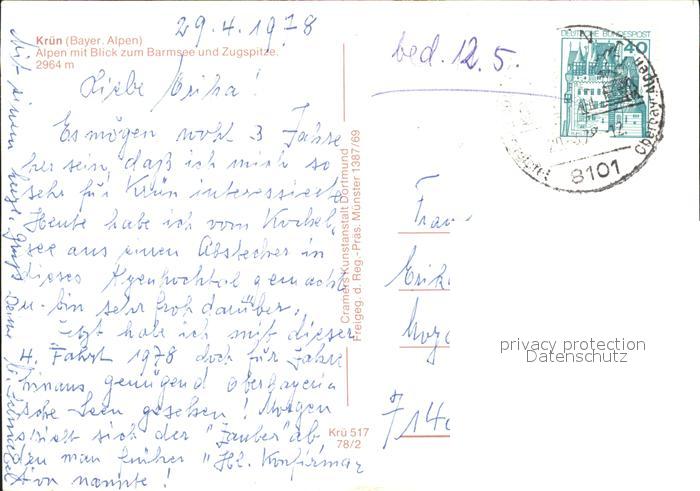 29.4.1978
Krün (Bayer. Alpen)
Alpen mit Blick zum Barmsee und Zugspitze.
2964 m
Liebe Erika!
Es mögen wohl 3 Jahre
her sein, daß ich mich so
sehr für Krün interessiert
Heute habe ich vom Kochel-
see aus einen Abstecher in
dieses Alpenhochtal gemacht
u. bin sehr froh darüber.
Jetzt habe ich mit dieser
4. Fahrt 1978 doch für Jahre
hinaus genügend oberbayeri
sche Seen gesehen! Morgen
spielt sich der "Zauber" ab,
den man früher "Hl. Konfirma
tion nannte!
Mit einem herzl. Gruß Deine
Cramers Kunstanstalt Dortmund
Freigeg. d. Reg.-Präs. Münster 1387/69
Krü 517
78/2
bed. 12.5.
DEUTSCHE BUNDESPOST
40
8101
Frau
Erik
714
privacy protection
Datenschutz